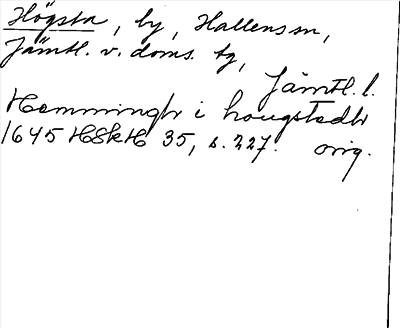 Högsta, by, Hallens sn,
Jämtl. v. doms. tg,
Jämtl. l.
Hemmingh i hougstadh
1645 HSkH 35, s. 227. orig.